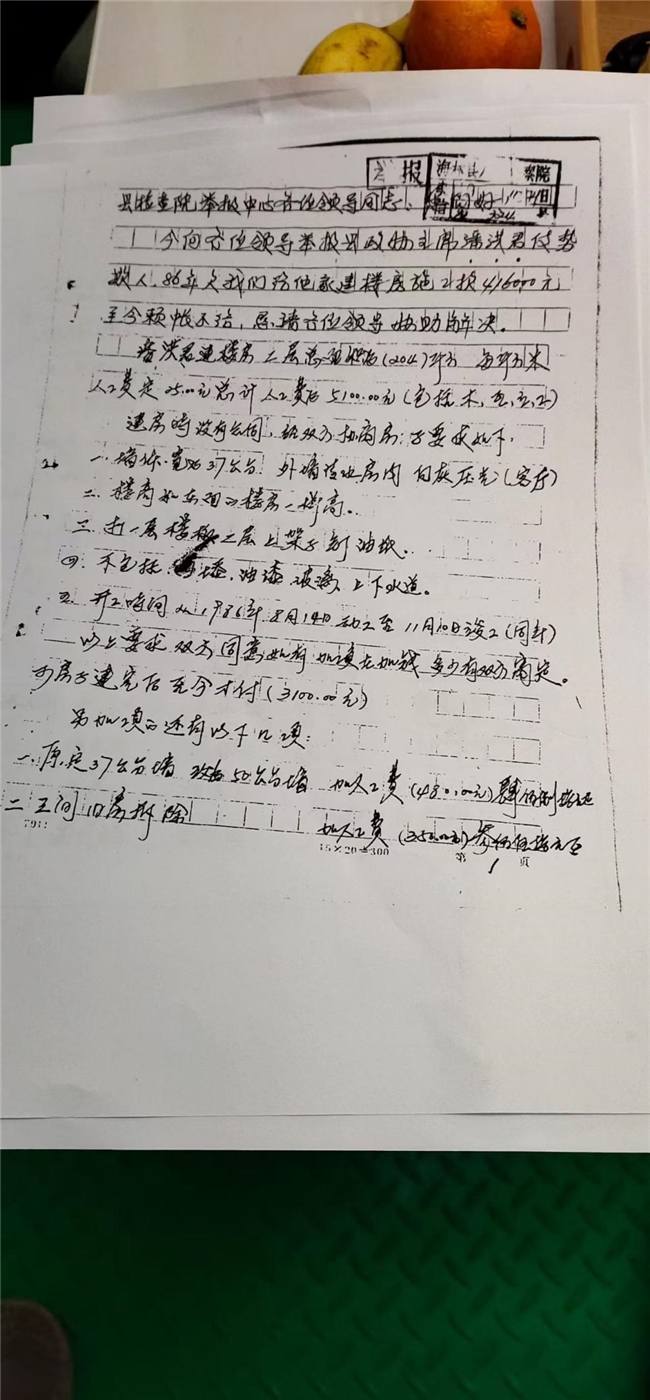 举报
检院
县检查院举报中心各位领导同志:
今向各位领导举报县政协主席潘洪君仗势
欺人.86年 我们给他家建楼房施工 元
至今赖帐不给,恳请各位领导 助解决。
潘洪君建楼房二层总面积为(204)平方 每平方米
人工费定25.00元总计人工费为5100.00元(包括木,瓦,
建房时没有合同,经双方协商房:子要求如下.
一.墙体宽为37公分.外墙 白灰压光(客厅)
二.楼高和东 楼房一样高。
三.打一层楼板二层上架子 油毡.
四.不包括 漆.油漆.玻璃.上下水道。
五.开工时间从1986年8月14日动工至11月10日竣工
以上要求双方同意如有加项在加钱多少有双方商定。
房子建完后至今才付(3100.00元)
另加项的还有以下几项:
一.原定37公分墙 改为50公分墙 加人工费(480.00元)肆佰捌拾元正
二 三间旧房拆除 加人工费(350.00元)叁佰伍拾元正
15×20=300
第 1 页